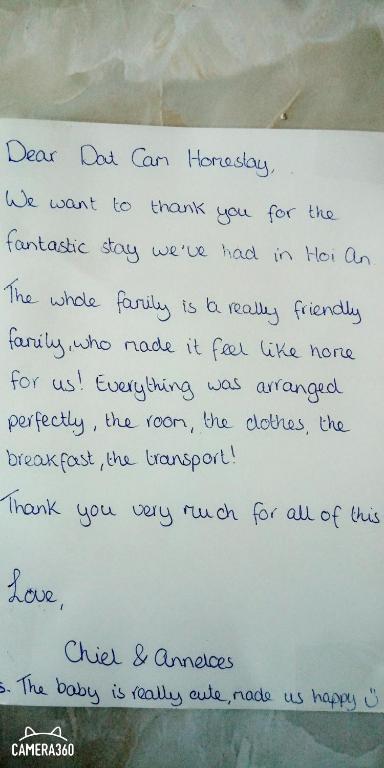 Dear Dat Cam Homestay,
We want to thank you for the
fantastic stay we've had in Hoi An
The whole family is a really friendly
family, who made it feel like home
for us! Everything was arranged
perfectly, the room, the clothes, the
breakfast, the transport!
Thank you very much for all of this
Love,
Chiel & Anneloes
s. The baby is really cute, made us happy ☺
CAMERA360